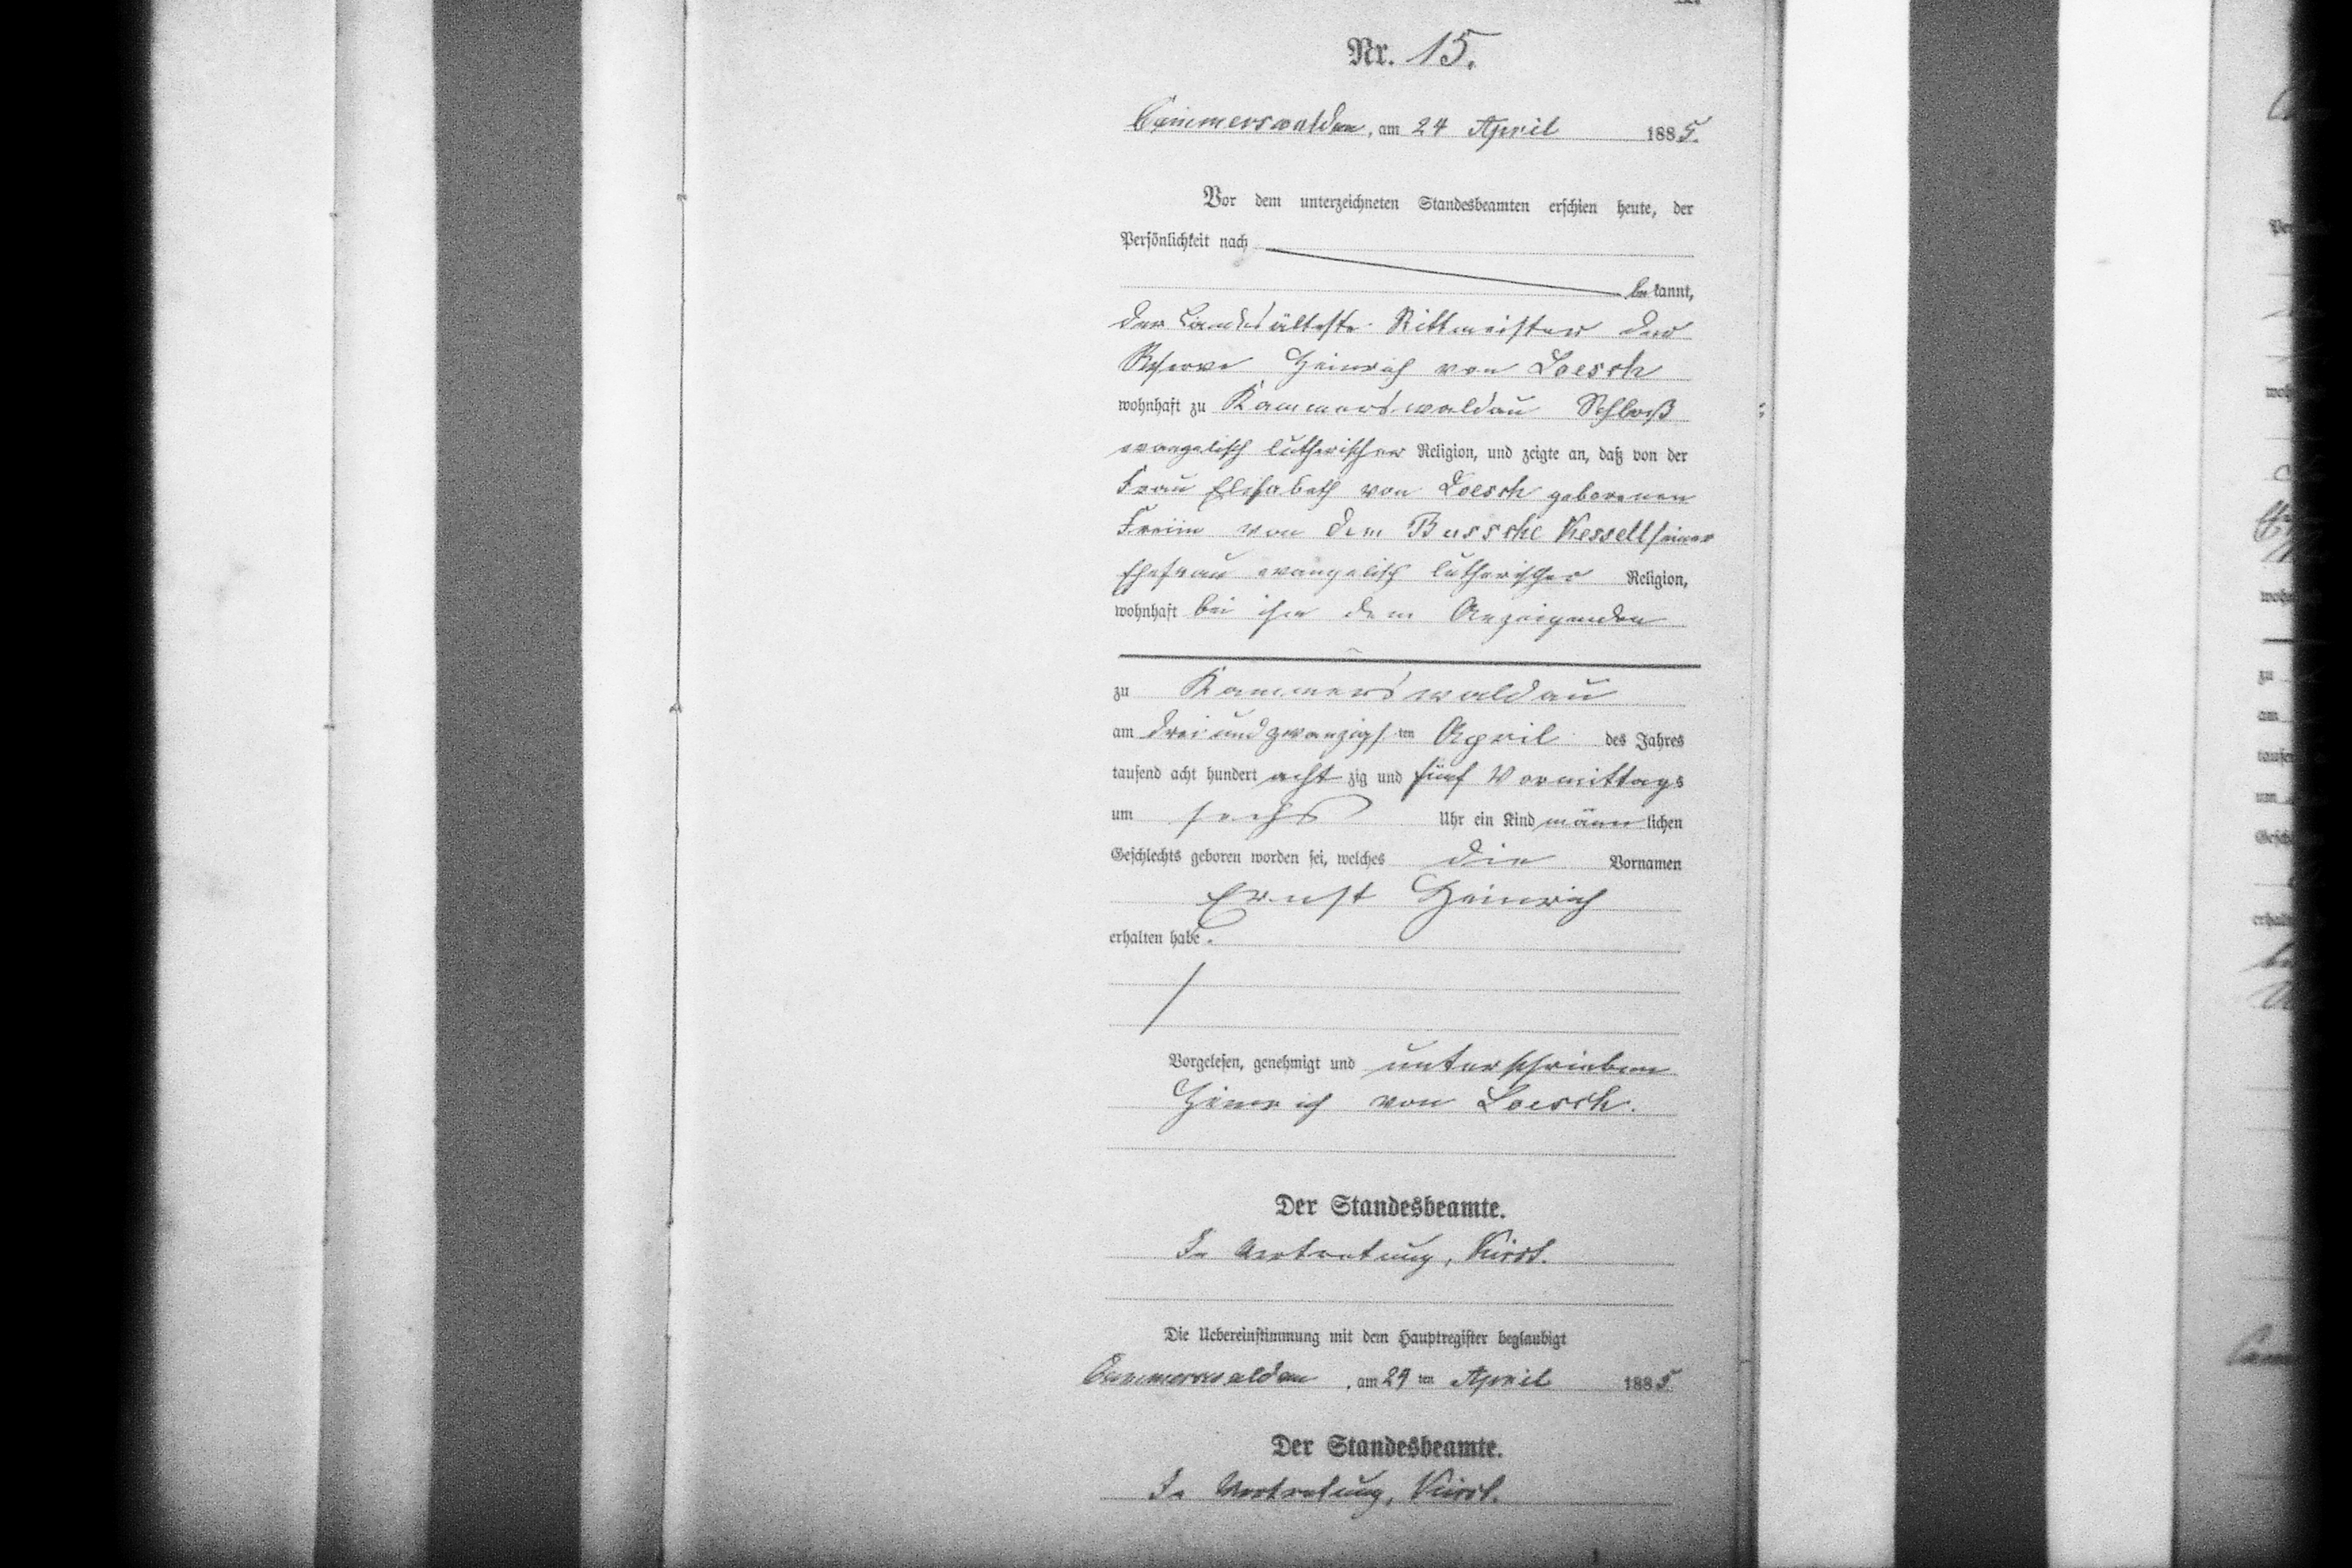 Nr. 15.
Cammerswaldau, am 24 April 1885.
Vor dem unterzeichneten Standesbeamten erschien heute, der
Persönlichkeit nach
bekannt,
der Landesälteste Rittmeister der
Reserve Heinrich von Loesch
wohnhaft zu Kammerswaldau Schloß
evangelisch lutherischer Religion, und zeigte an, daß von der
Frau Elisabeth von Loesch geborenen
Freiin von dem Bussche Kessell seiner
Ehefrau evangelisch lutherischer Religion,
wohnhaft bei ihm dem Anzeigenden
zu Kammerswaldau
am drei und zwanzigsten April des Jahres
tausend acht hundert achtzig und fünf Vormittags
um sechs Uhr ein Kind männlichen
Geschlechts geboren worden sei, welches die Vornamen
Ernst Heinrich
erhalten habe.
Vorgelesen, genehmigt und unterschrieben
Heinrich von Loesch.
Der Standesbeamte.
In Vertretung,
Die Uebereinstimmung mit dem Hauptregister beglaubigt
Cammerswaldau, am 24ten April 1885
Der Standesbeamte.
In Vertretung,